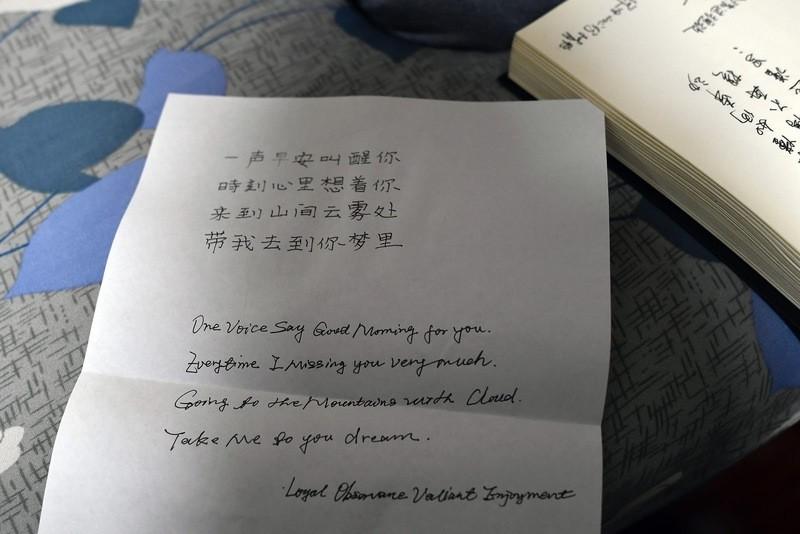 一声早安叫醒你
時刻心里想着你
来到山间云雾处
带我去到你梦里
One Voice Say Good Morning for you.
Everytime I Missing you very much.
Going to the Mountains with Cloud.
Take Me to you dream.
Loyal Valiant Enjoyment